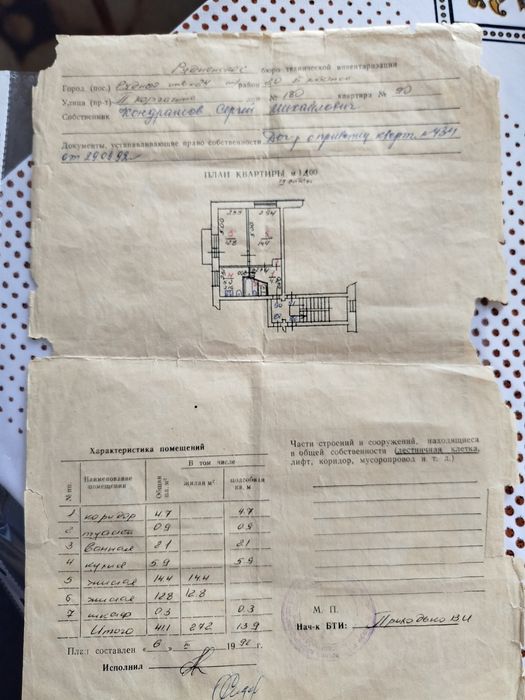 бюро технической инвентаризации
Город (пос.) район
Улица (пр-т) П дом № 180 квартира № 90
Собственник Кондрансов Сергей Михайлович
Документы, устанавливающие право собственности Дог о приватиз кварт
от 29.08.92
ПЛАН КВАРТИРЫ М 1:100
Характеристика помещений
№ пп. Наименование помещения Общая пл. м² В том числе жилая м² подсобная кв. м
1 коридор 4.7 4.7
2 туалет 0.9 0.9
3 ванная 2.1 2.1
4 кухня 5.9 5.9
5 жилая 14.4 14.4
6 жилая 12.8 12.8
7 шкаф 0.3 0.3
Итого 41.1 27.2 13.9
План составлен « 6 » 1992 г.
Исполнил
Части строений и сооружений, находящиеся
в общей собственности (лестничная клетка,
лифт, коридор, мусоропровод и т. д.)
М. П.
Нач-к БТИ: Приходько В.И